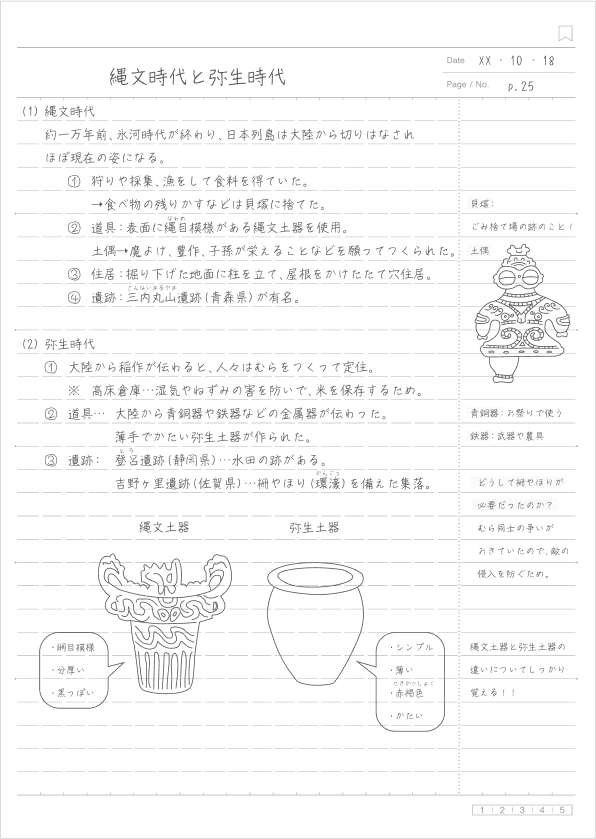 Date XX・10・18
縄文時代と弥生時代
Page / No. p.25
(1) 縄文時代
約一万年前、氷河時代が終わり、日本列島は大陸から切りはなされ
ほぼ現在の姿になる。
① 狩りや採集、漁をして食料を得ていた。
→食べ物の残りかすなどは貝塚に捨てた。
貝塚:
なわめ
② 道具:表面に縄目模様がある縄文土器を使用。
ごみ捨て場の跡のこと!
土偶→魔よけ、豊作、子孫が栄えることなどを願ってつくられた。
土偶
③ 住居:掘り下げた地面に柱を立て、屋根をかけたたて穴住居。
さんないまるやま
④ 遺跡:三内丸山遺跡(青森県)が有名。
(2) 弥生時代
① 大陸から稲作が伝わると、人々はむらをつくって定住。
※ 高床倉庫…湿気やねずみの害を防いで、米を保存するため。
② 道具… 大陸から青銅器や鉄器などの金属器が伝わった。
青銅器:お祭りで使う
薄手でかたい弥生土器が作られた。
鉄器:武器や農具
とろ
③ 遺跡: 登呂遺跡(静岡県)…水田の跡がある。
かんごう
吉野ヶ里遺跡(佐賀県)…柵やほり(環濠)を備えた集落。
どうして柵やほりが
必要だったのか?
むら同士の争いが
おきていたので、敵の
侵入を防ぐため。
縄文土器
弥生土器
・網目模様
・分厚い
・黒っぽい
・シンプル
・薄い
せきかっしょく
・赤褐色
・かたい
縄文土器と弥生土器の
違いについてしっかり
覚える!!
1 2 3 4 5